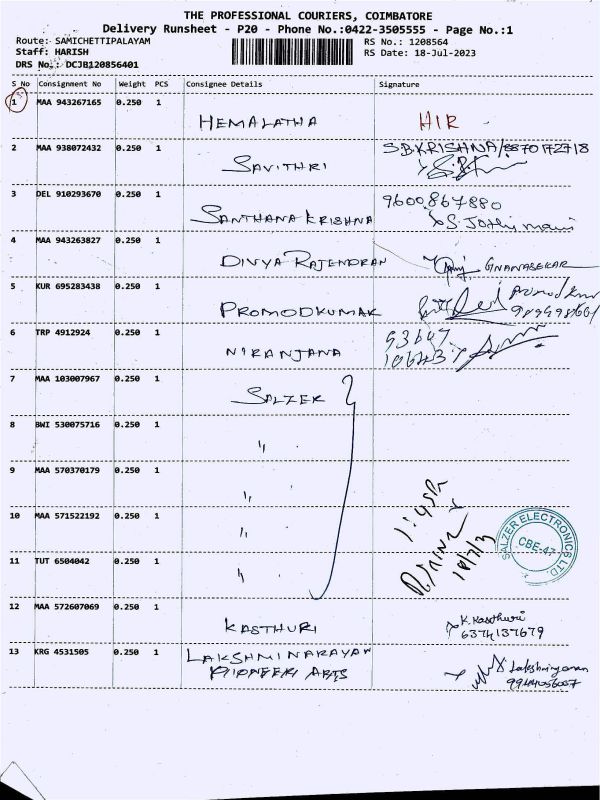 THE PROFESSIONAL COURIERS, COIMBATORE
Delivery Runsheet - P20 - Phone No.:0422-3505555 - Page No.:1
Route:- SAMICHETTIPALAYAM RS No.: 1208564
Staff: HARISH RS Date: 18-Jul-2023
DRS No.: DCJB120856401
S No Consignment No Weight PCS Consignee Details Signature
1 MAA 943267165 0.250 1 HEMALATHA HIR
2 MAA 938072432 0.250 1 SAVITHRI S.B.KRISHNA/8870172718
3 DEL 910293670 0.250 1 SANTHANA KRISHNA 9600867880
S. Jothimani
4 MAA 943263827 0.250 1 DIVYA RAJENDRAN GNANASEKAR
5 KUR 695283438 0.250 1 PROMODKUMAR
6 TRP 4912924 0.250 1 NIRANJANA 93647
10643
7 MAA 103007967 0.250 1 SALZER
8 BWI 530075716 0.250 1 "
9 MAA 570370179 0.250 1 "
10 MAA 571522192 0.250 1 "
11 TUT 6504042 0.250 1 "
SALZER ELECTRONICS LTD.
CBE-47
12 MAA 572607069 0.250 1 KASTHURI K. Kasthuri
6374137679
13 KRG 4531505 0.250 1 LAKSHMINARAYAN
PIONEER ARTS